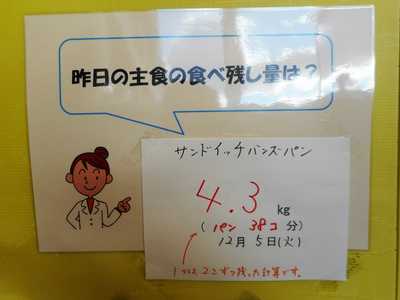 昨日の主食の食べ残し量は？
サンドイッチバンズパン
4.3 kg
(パン 38コ 分)
12月 5日(火)
1クラス 2コずつ残った計算です。